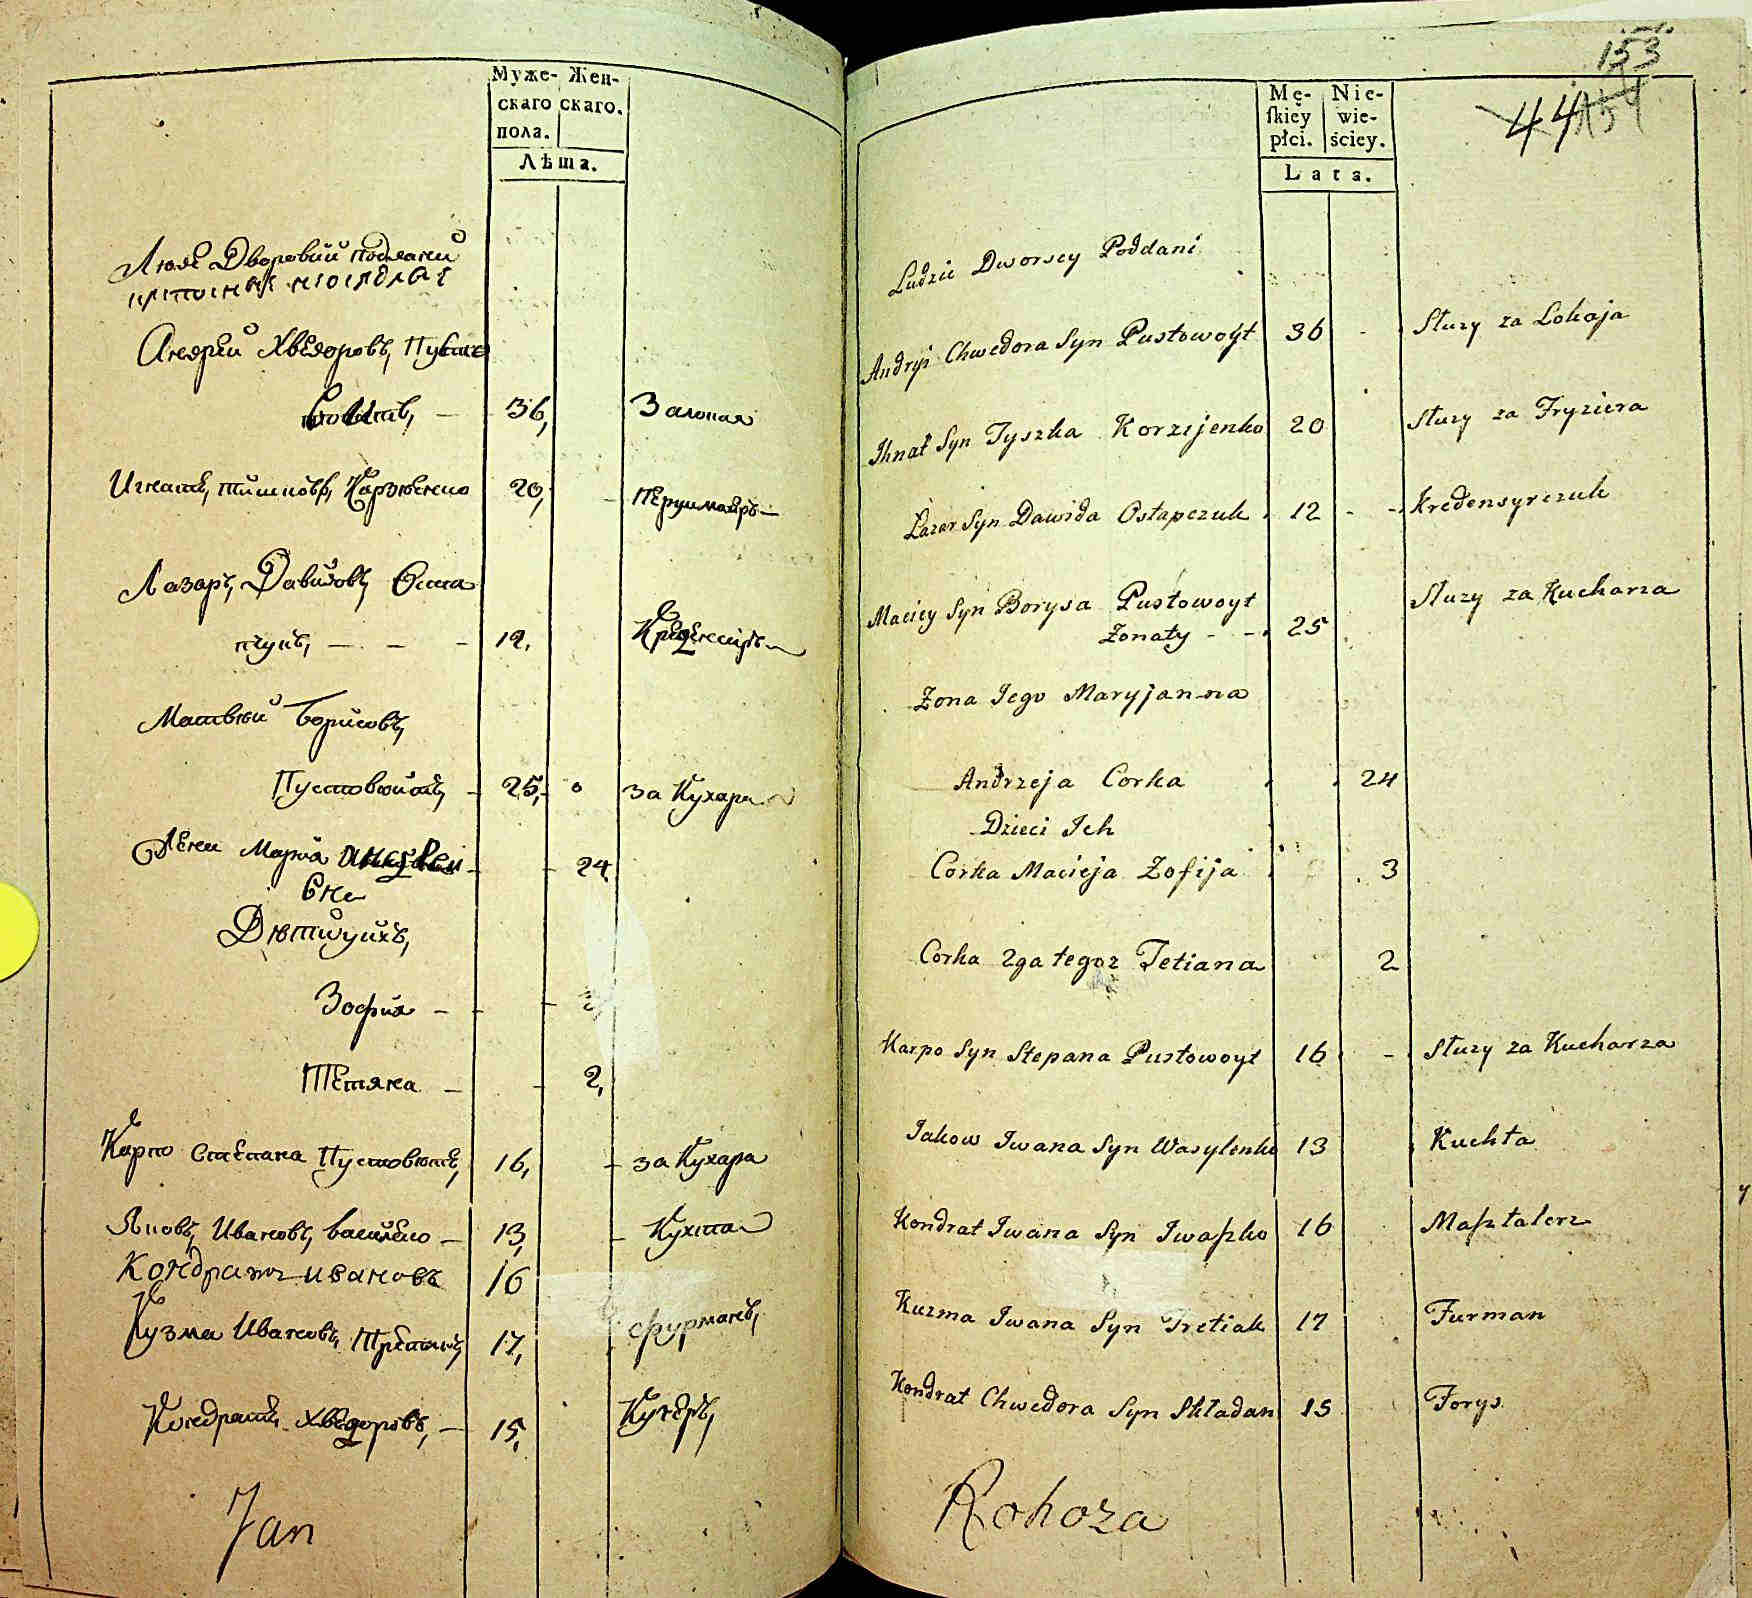 Муже- Жен-
скаго скаго.
пола.
Лѣта.
Люде Дворовии подании
Андреи Хведоровъ, Пусто
войтъ, — 36, За локая
Игнатъ, тишковъ, Каржѣенко 20,
Лазаръ, Давидовъ, Оста
пчукъ, — — — 12. Креденсиръ
Матвѣи Борисовъ,
Пустовойтъ, — 25, за Кухара
Жена Марья Андреи 24
вна
Дѣти ихъ,
Зофия — —
Тетяна — — 2,
Карпо Степана Пустовойтъ, 16, — за Кухара
Яковъ, Ивановъ, Василенко — 13, — Кухта
Кондратъ ивановъ 16
Кузма Ивановъ, Третякъ, 17, фурманъ,
Кондратъ Хведоровъ, — 15, Кучеръ,
Jan
153
44 154
Mę- Nie-
skiey wie-
płci. ściey.
Lata.
Ludzie Dworscy Poddani
Andryi Chwedora Syn Pustowoyt 36 - Służy za Lokaja
Ihnat Syn Tyszka Korzijenko 20 Służy za Fryziera
Łazar Syn Dawida Ostapczuk 12 - - Kredensyrczuk
Maciey Syn Borysa Pustowoyt Służy za Kucharza
Żonaty - - 25
Żona Jego Maryjanna
Andrzeja Corka 24
Dzieci Ich
Corka Macieja Zofija 3
Corka 2ga tegoż Tetiana 2
Karpo Syn Stepana Pustowoyt 16 - Służy za Kucharza
Jakow Iwana Syn Wasylenko 13 Kuchta
Kondrat Iwana Syn Iwaszko 16 Masztalerz
Kuzma Iwana Syn Tretiak 17 Furman
Kondrat Chwedora Syn Składan 15 Forys
Rohoza